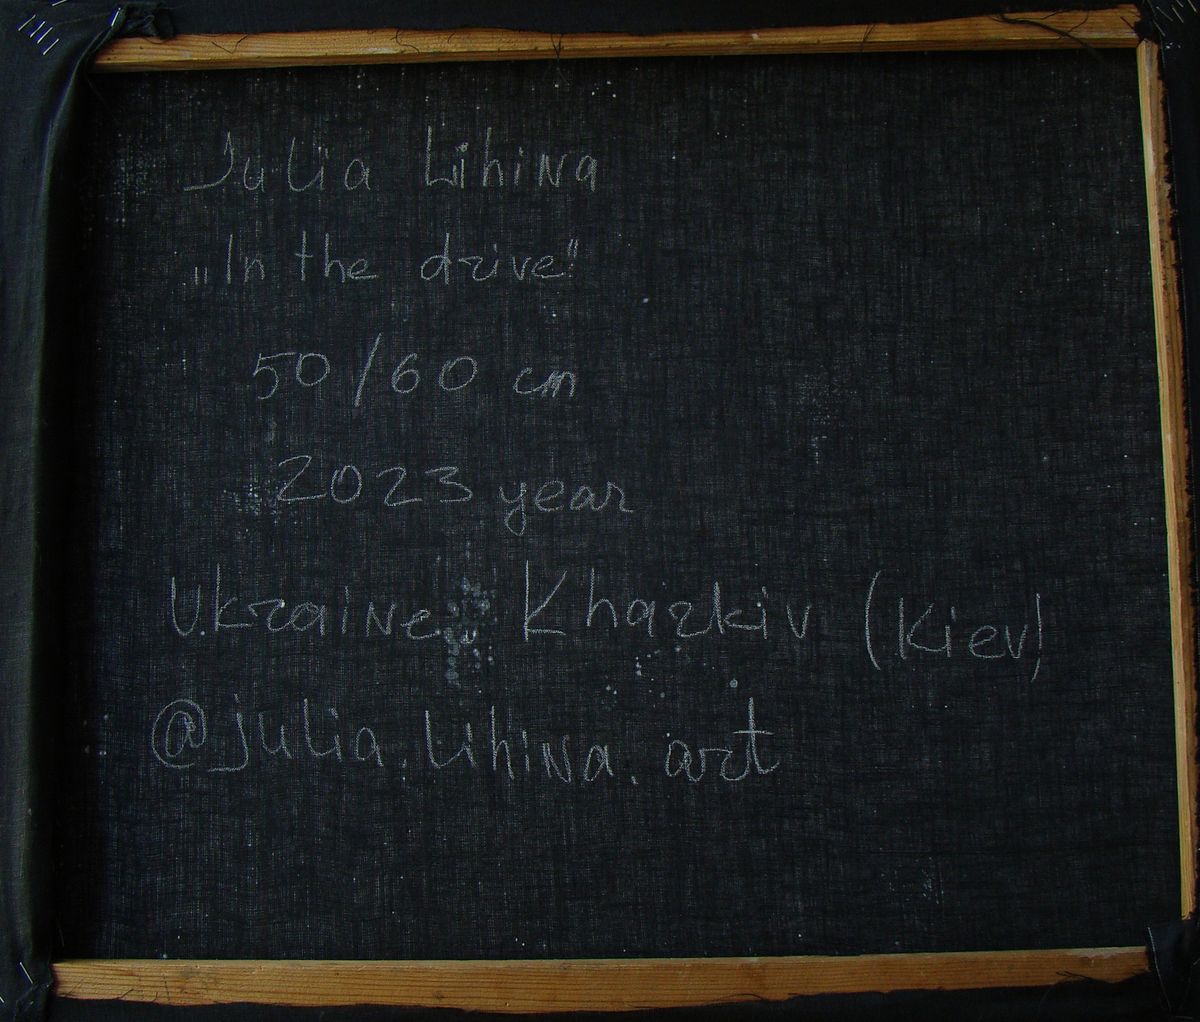 Julia Lihina
„In the drive"
50/60 cm
2023 year
Ukraine, Kharkiv (Kiev)
@julia.lihina.art